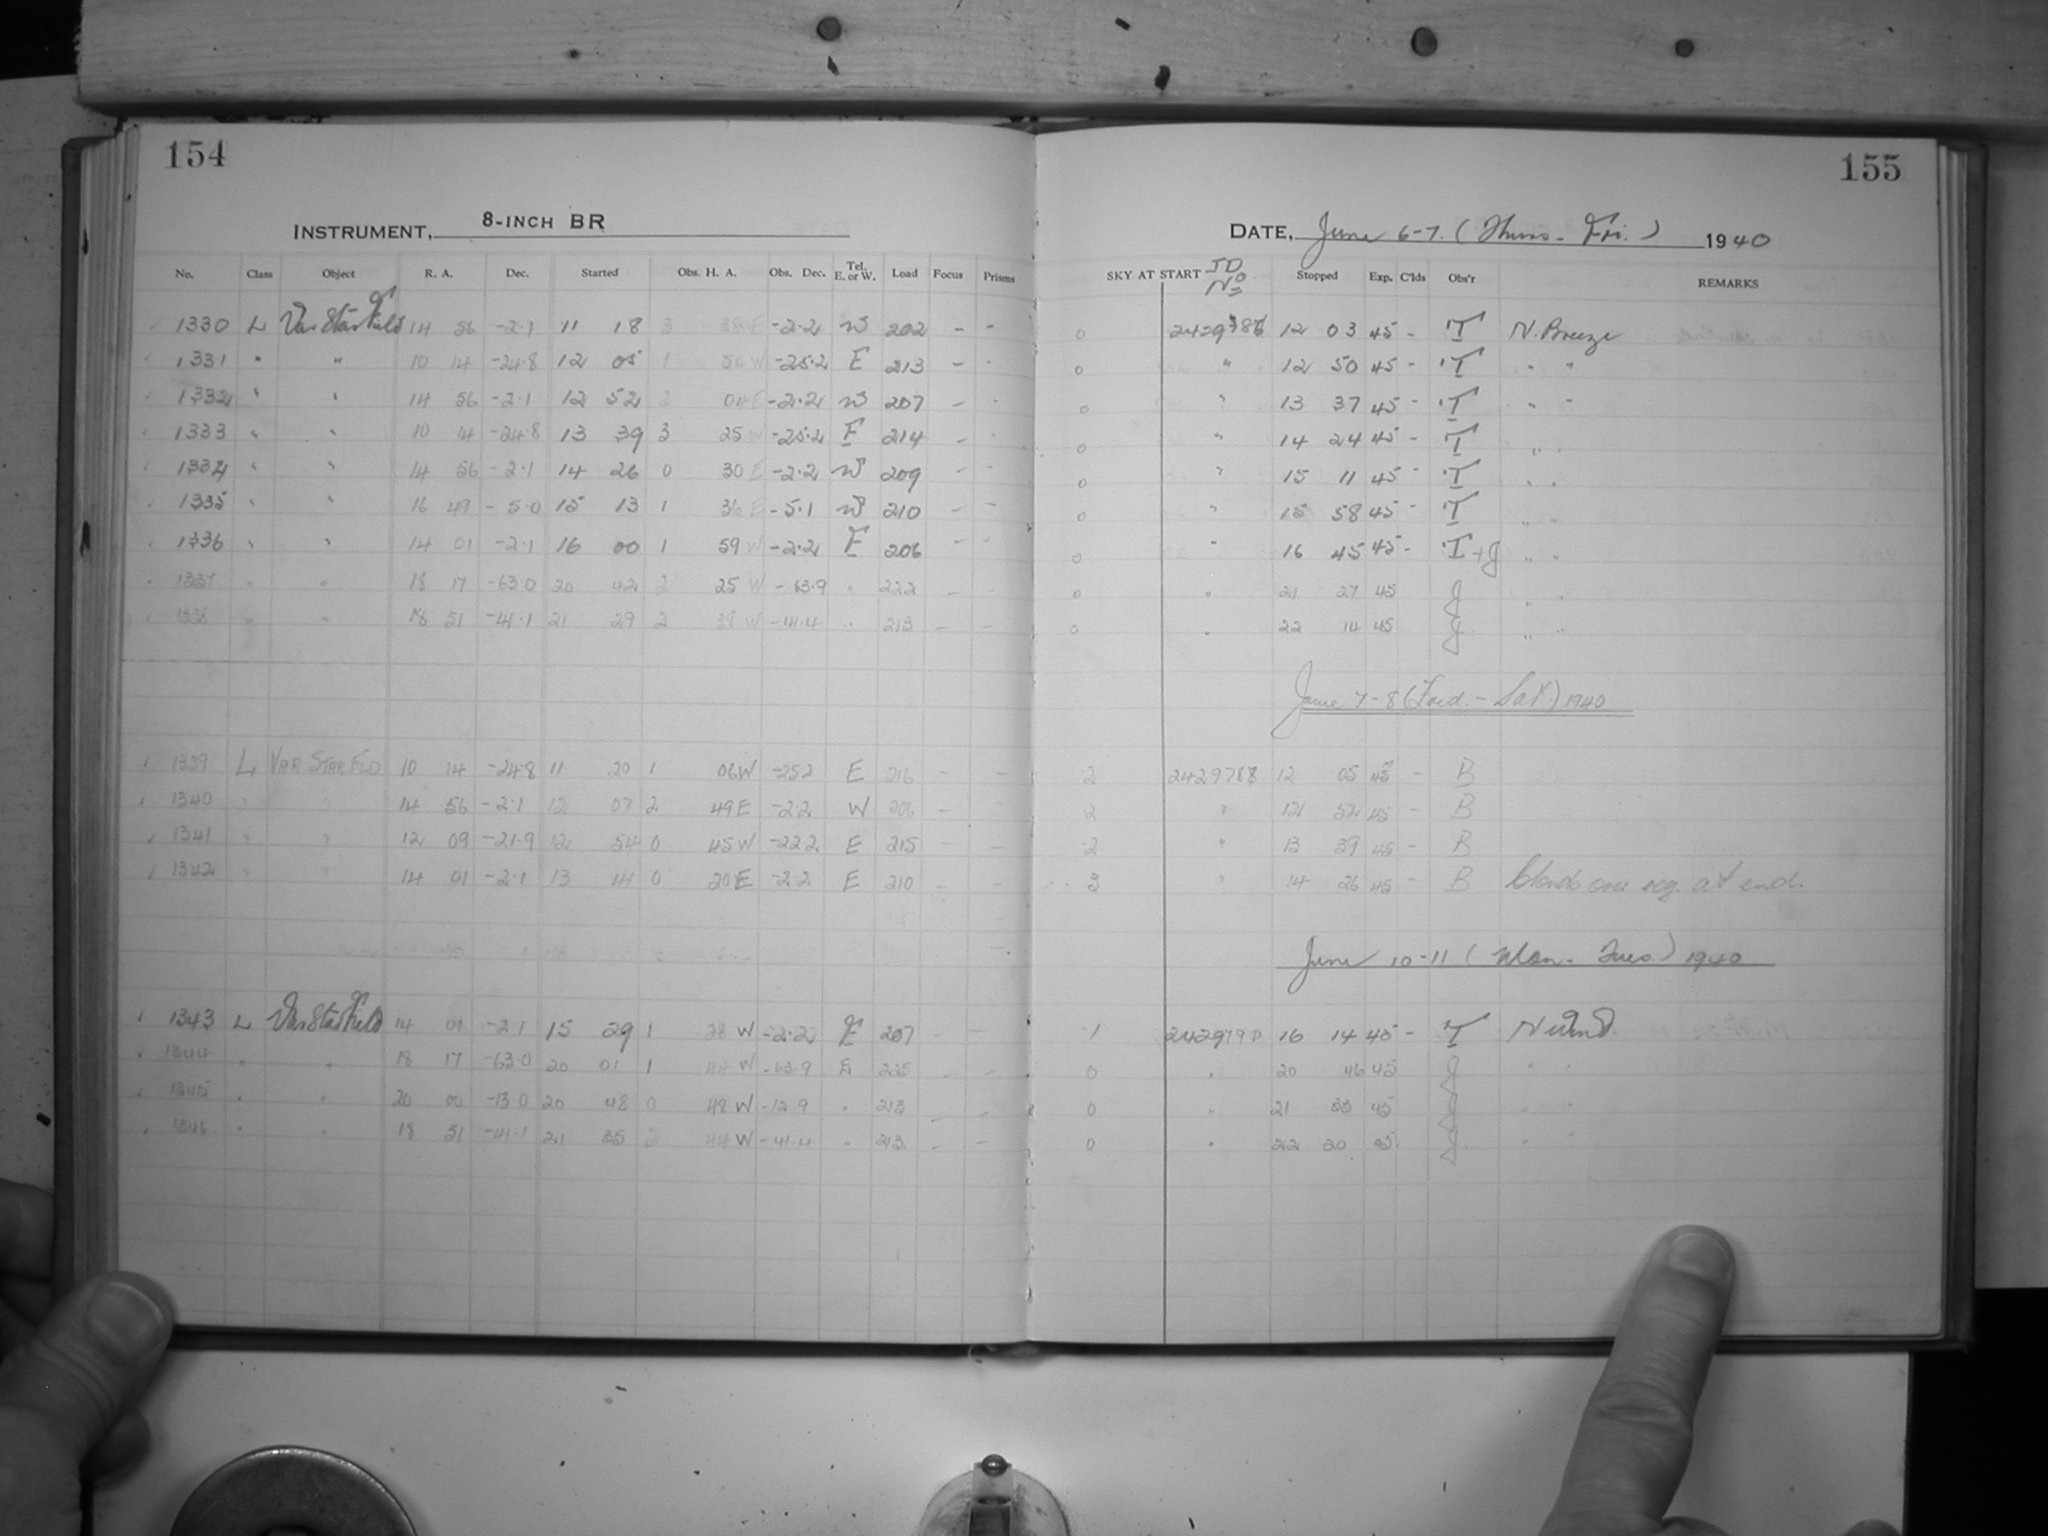 154
INSTRUMENT, 8-INCH BR
No. Class Object R. A. Dec. Started Obs. H. A. Obs. Dec. Tel. E. or W. Load Focus Prisms
1330 L Var Star Field 14 56 -2.1 11 18 3 38 E -2.2 W 202 - -
1331 " " 10 14 -24.8 12 05 1 52 W -25.2 E 213 - -
1332 " " 14 56 -2.1 12 52 2 04 E -2.2 W 207 - -
1333 " " 10 14 -24.8 13 39 3 25 W -25.2 E 214 - -
1334 " " 14 56 -2.1 14 26 0 30 E -2.2 W 209 - -
1335 " " 16 49 -5.0 15 13 1 36 E -5.1 W 210 - -
1336 " " 14 01 -2.1 16 00 1 59 W -2.2 E 206 - -
1337 " " 18 17 -63.0 20 42 2 25 W -63.9 " 222 - -
1338 " " 18 51 -41.1 21 29 2 38 W -41.4 " 213 - -
1339 L VAR STAR FLD 10 14 -24.8 11 20 1 06 W -25.2 E 216 - -
1340 " " 14 56 -2.1 12 07 2 49 E -2.2 W 206 - -
1341 " " 12 09 -21.9 12 54 0 45 W -22.2 E 215 - -
1342 " " 14 01 -2.1 13 41 0 20 E -2.2 E 210 - -
1343 L Var Star Field 14 01 -2.1 15 29 1 28 W -2.2 E 207 - -
1344 " " 18 17 -63.0 20 01 1 44 W -63.9 E 225 - -
1345 " " 20 00 -13.0 20 48 0 48 W -12.9 " 213 - -
1346 " " 18 51 -41.1 21 35 2 44 W -41.4 " 213 - -
155
DATE, June 6-7. (Thurs- Fri.) 1940
SKY AT START JD No Stopped Exp. C'lds Obs'r REMARKS
0 2429786 12 03 45 - T N. Breeze
0 " 12 50 45 - T " "
0 " 13 37 45 - T " "
0 " 14 24 45 - T " "
0 " 15 11 45 - T " "
0 " 15 58 45 - T " "
0 " 16 45 45 - T+J " "
0 " 21 27 45 J " "
0 " 22 14 45 J " "
June 7-8 ( - Sat.) 1940
2 2429788 12 05 45 - B
2 " 12 52 45 - B
2 " 13 39 45 - B
3 " 14 26 45 - B Clouds over reg. at end.
June 10-11 (Mon- Tues.) 1940
1 2429790 16 14 45 - T N Wind
0 " 20 46 45 J " "
0 " 21 33 45 J " "
0 " 22 20 45 J " "